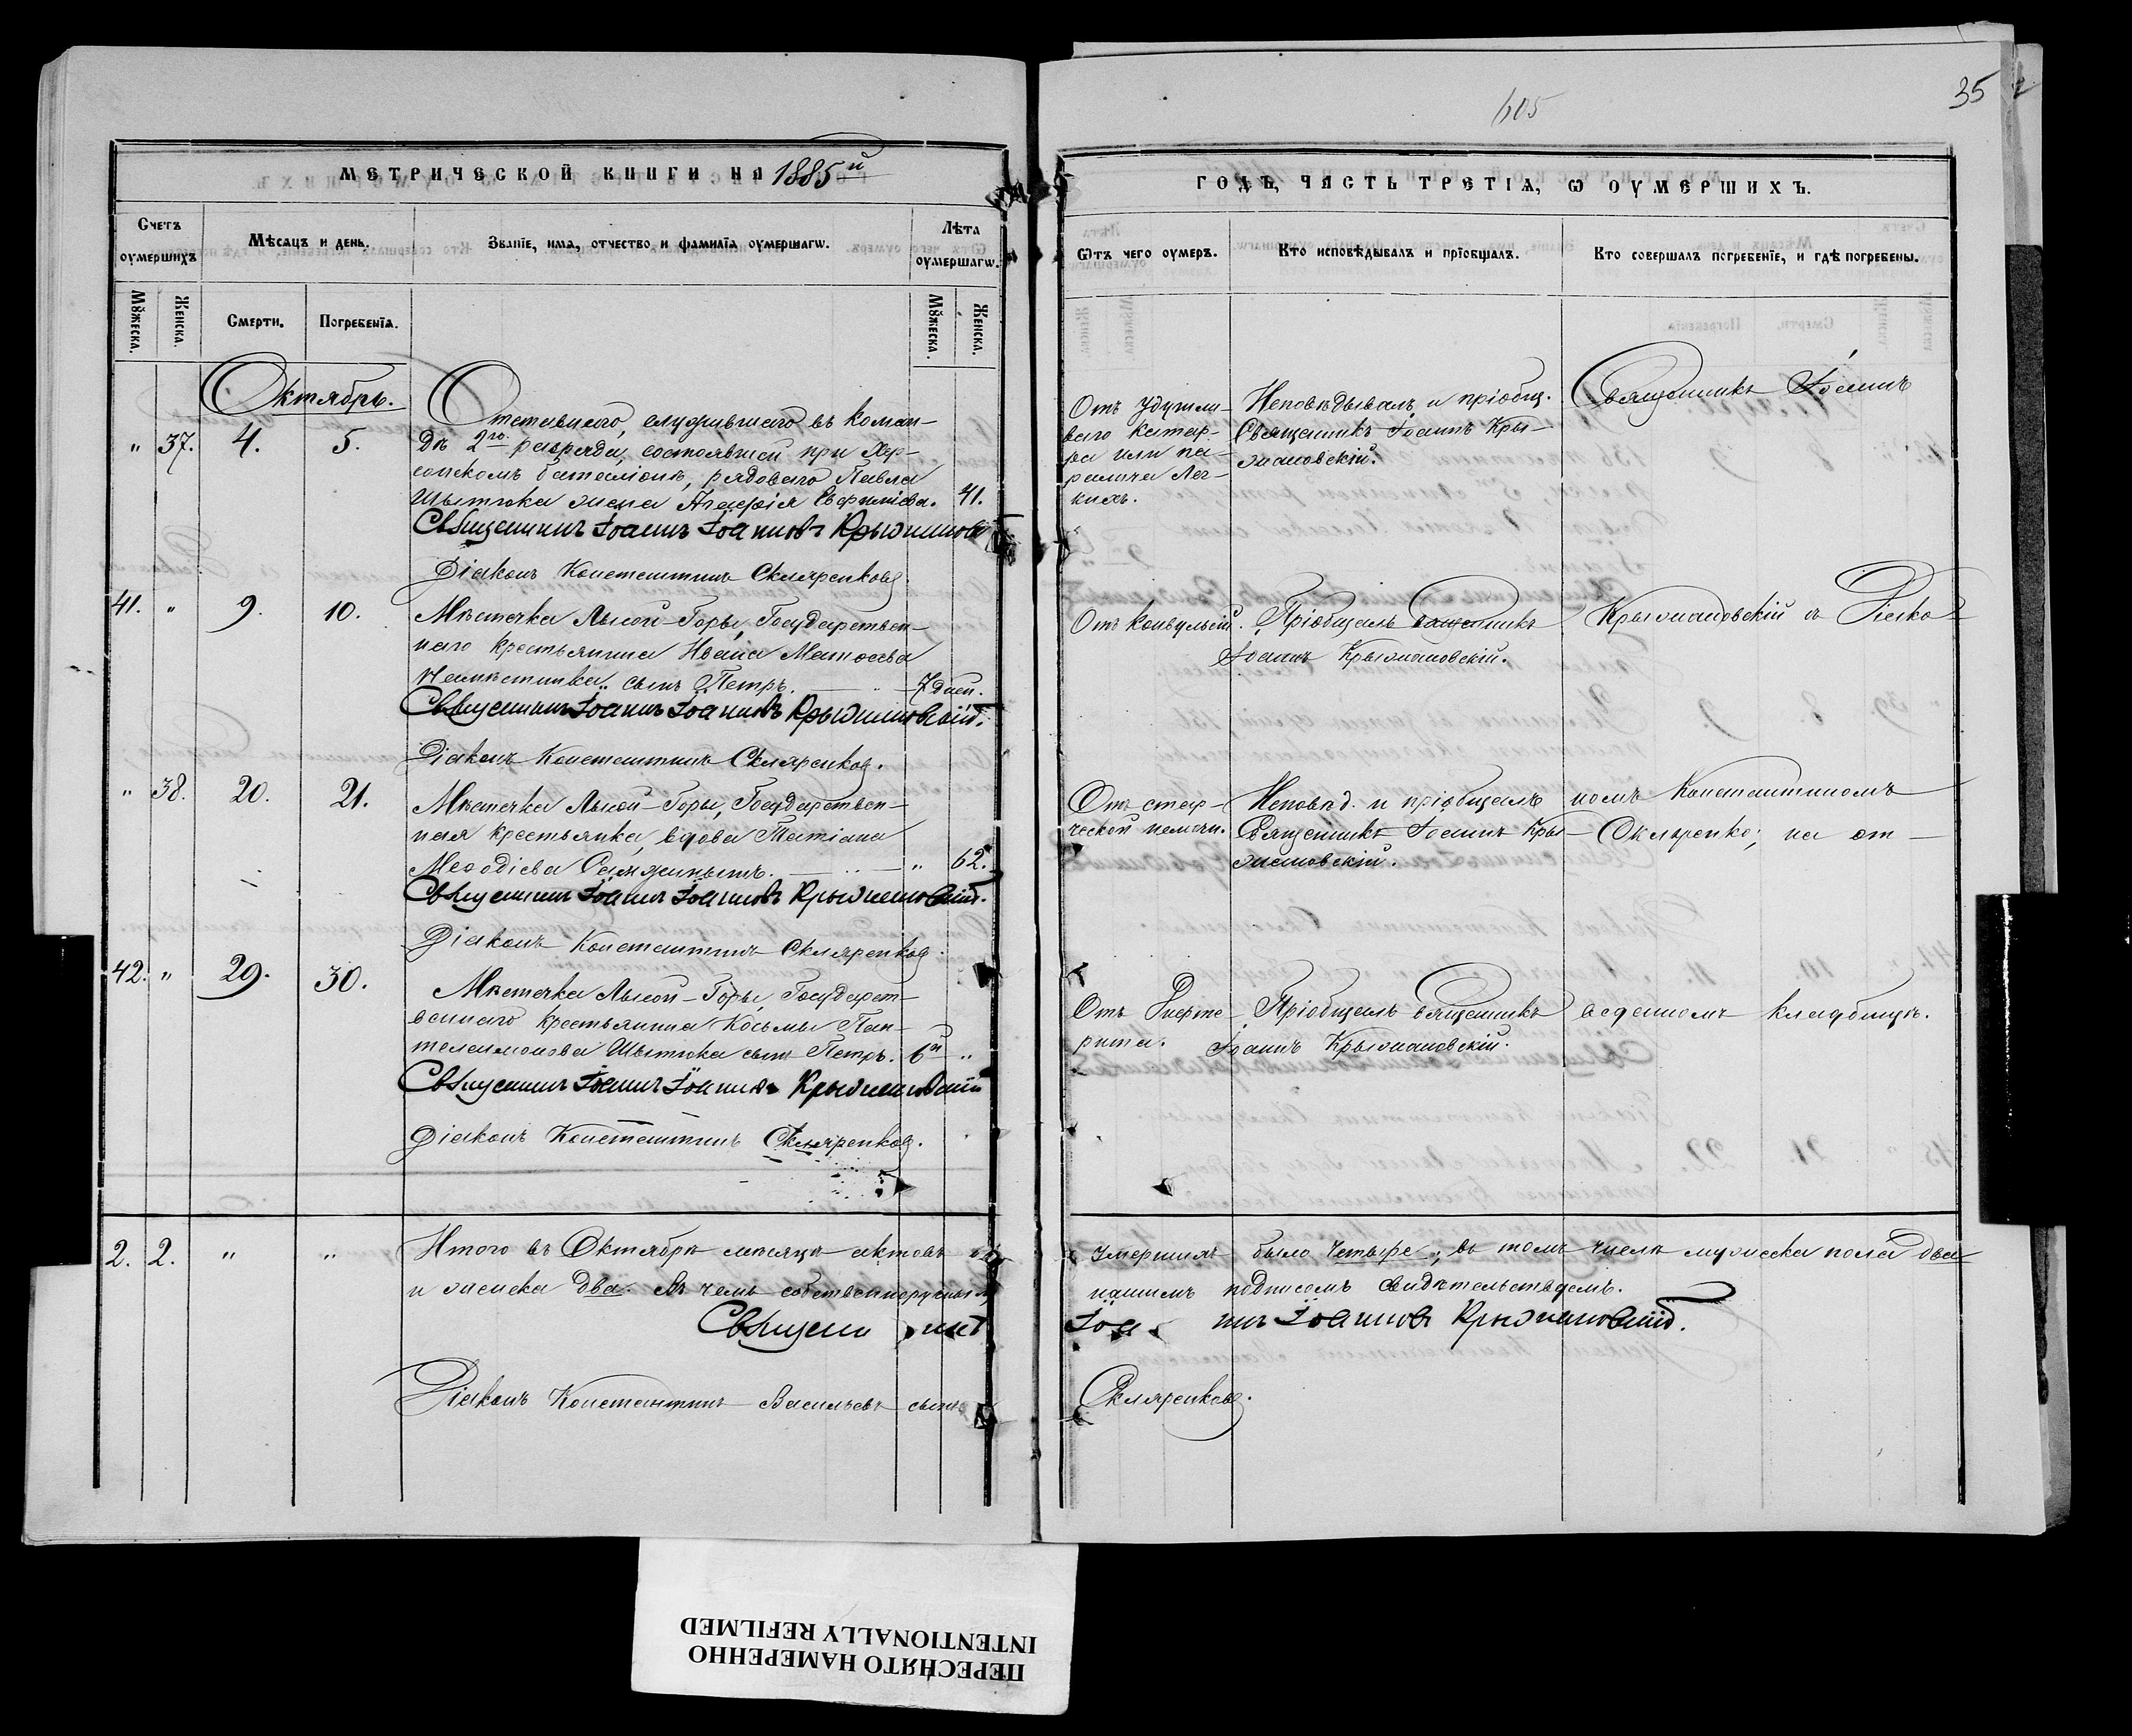 605
35
МЕТРИЧЕСКОЙ КНИГИ НА 1885й
ГОДЪ, ЧАСТЬ ТРЕТІЯ, Ѡ ОУМЕРШИХЪ.
Счетъ оумершихъ
Мѣсяцъ и день.
Званіе, има, отчество и фамиліа оумершагѡ.
Лѣта оумершагѡ.
Ѿтъ чего оумеръ.
Кто исповѣдывалъ и прїобщалъ.
Кто совершалъ погребенїе, и гдѣ погребены.
Мꙋжеска.
Женска.
Смерти.
Погребенїа.
Мꙋжеска.
Женска.
Октябрь.
" 37. 4. 5.
Отставного, служившаго въ коман-
дѣ 2го разряда, состоявшей при Хер-
сонскомъ баталіонѣ, рядоваго Павла
Шытюка жена Агафія Евфиміева. 41.
Священникъ Іоаннъ Іоанновъ Крыжановскій
Діаконъ Константинъ Скляренковъ.
Отъ удушли-
ваго катар-
ра или па-
ралича лег-
кихъ.
Исповѣдывалъ и пріобщ.
Священникъ Іоаннъ Кры-
жановскій.
Священникъ Іоаннъ
41. " 9. 10.
Мѣстечка Лысой-Горы, Государствен-
наго крестьянина Ивана Матѳеева
сынъ Петръ. 7 дней.
Священникъ Іоаннъ Іоанновъ Крыжановскій.
Діаконъ Константинъ Скляренковъ.
Отъ конвульсій.
Пріобщалъ священникъ
Іоаннъ Крыжановскій.
Крыжановскій съ Діако-
" 38. 20. 21.
Мѣстечка Лысой-Горы, Государствен-
ная крестьянка, вдова Татіана
Меѳодіева " 62.
Священникъ Іоаннъ Іоанновъ Крыжановскій.
Діаконъ Константинъ Скляренковъ.
Отъ стар-
ческой немощи.
Исповѣд. и пріобщалъ
Священникъ Іоаннъ Кры-
жановскій.
номъ Константиномъ
Скляренко; на от-
42. " 29. 30.
Мѣстечка Лысой-Горы, Государст-
веннаго крестьянина Косьмы Пан-
телеимонова Шытюка сынъ Петръ. 6й "
Священникъ Іоаннъ Іоанновъ Крыжановскій
Діаконъ Константинъ Скляренковъ.
Отъ Дифте-
рита.
Пріобщалъ священникъ
Іоаннъ Крыжановскій.
веденномъ кладбищѣ.
2. 2. " "
Итого въ Октябрѣ мѣсяцѣ актовъ
умершихъ было четыре; въ томъ числѣ мужеска пола два
и женска два. Въ чемъ собственноручнымъ
нашимъ подписомъ свидѣтельствуемъ.
Священникъ Іоаннъ Іоанновъ Крыжановскій.
Діаконъ Константинъ Васильевъ сынъ Скляренковъ.
ПЕРЕСНЯТО НАМЕРЕННО
INTENTIONALLY REFILMED